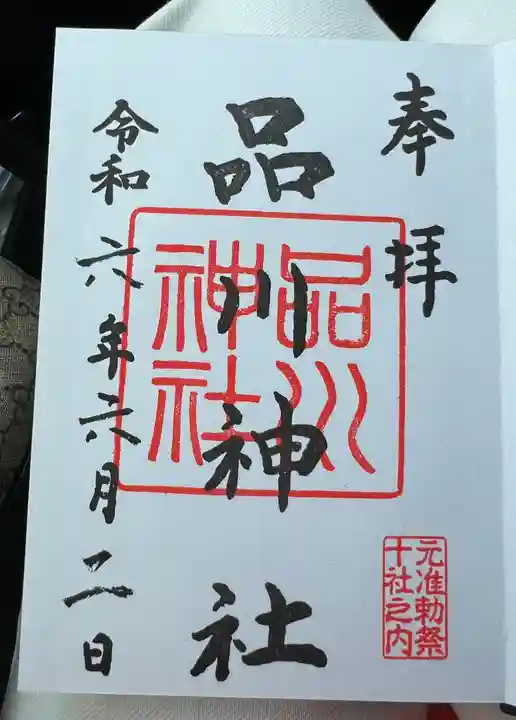 奉拝
品川神社
令和六年六月二日
品川
神社
元准勅祭
十社之内